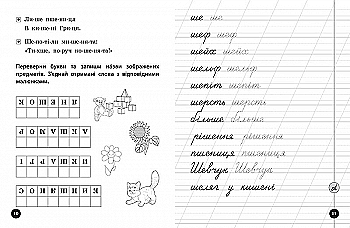 Ли-ше пше-ни-ця
В ки-ше-ні Гри-ця.
Ше-по-ті-ли ми-ше-ня-та:
«Ти-хше, по-руч ко-ше-ня-та!»
Переверни букви та запиши назви зображених
предметів. З'єднай отримані слова з відповідними
малюнками.
Я Н Е Ш О К
ше ше
шеф шеф
шейх шейх
шельф шельф
шепіт шепіт
шерсть шерсть
більше більше
рішення рішення
пшениця пшениця
Шевчук Шевчук
шелег у кишені